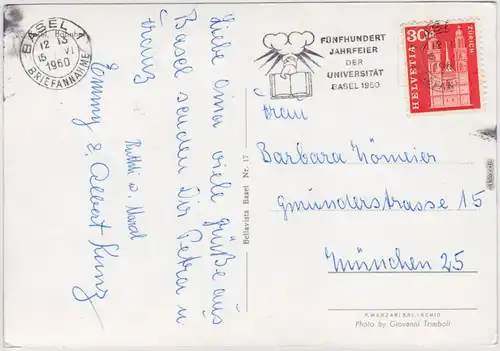 BASEL
12 13
15 VI
1960
BRIEFANNAHME
FÜNFHUNDERT
JAHRFEIER
DER
UNIVERSITÄT
BASEL 1960
30
HELVETIA
ZÜRICH
Liebe Oma viele Grüße aus
Basel senden Dir Petra u.
Franz
Ruthli u.
Emmy & Albert Kunz
Bellavista Basel Nr. 17
Frau
Barbara Hömeier
Gmünderstrasse 15
München 25
Photo by Giovanni Trimboli